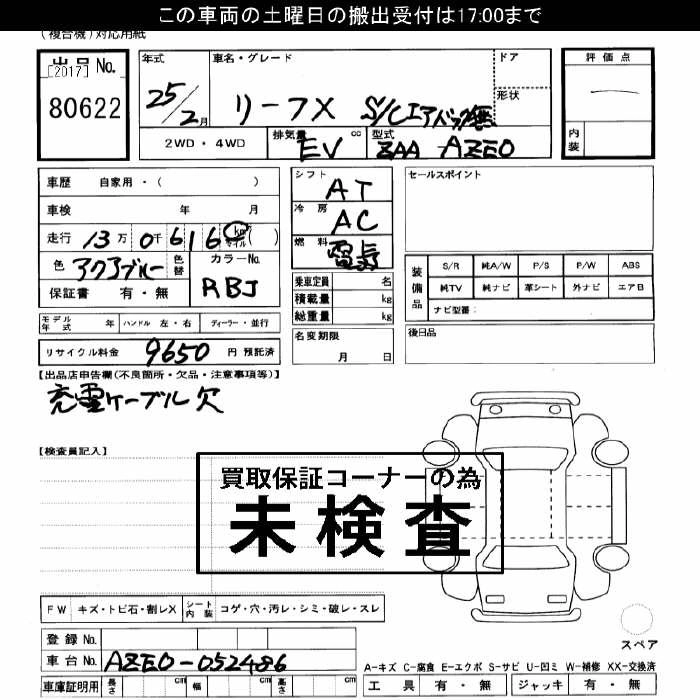 この車両の土曜日の搬出受付は17:00まで
(複合機)対応用紙
出品 No.
[2017]
80622
年式
25/2月
車名・グレード
リーフX S/Cエアバック無
ドア
形状
2WD・4WD
排気量 cc
EV
型式
ZAA AZE0
評価点
内装
車歴 自家用・( )
車検 年 月
走行 13万 0千 616 km マイル ( )
色 アクアブルー
色替
カラーNo.
RBJ
保証書 有・無
シフト AT
冷房 AC
燃料 電気
乗車定員 名
積載量 kg
総重量 kg
名変期限
月 日
セールスポイント
装備品
S/R 純A/W P/S P/W ABS
純TV 純ナビ 革シート 外ナビ エアB
ナビ型番:
後日品
モデル年式 年 ハンドル 左・右 ディーラー・並行
リサイクル料金 9650 円 預託済
【出品店申告欄(不良箇所・欠品・注意事項等)】
充電ケーブル欠
【検査員記入】
買取保証コーナーの為
未検査
FW キズ・トビ石・割レX シート内装 コゲ・穴・汚レ・シミ・破レ・スレ
登録 No.
車台 No. AZE0-052486
車庫証明用 長さ cm 幅 cm 高さ cm
スペア
A-キズ C-腐食 E-エクボ S-サビ U-凹ミ W-補修 XX-交換済
工具 有・無 ジャッキ 有・無